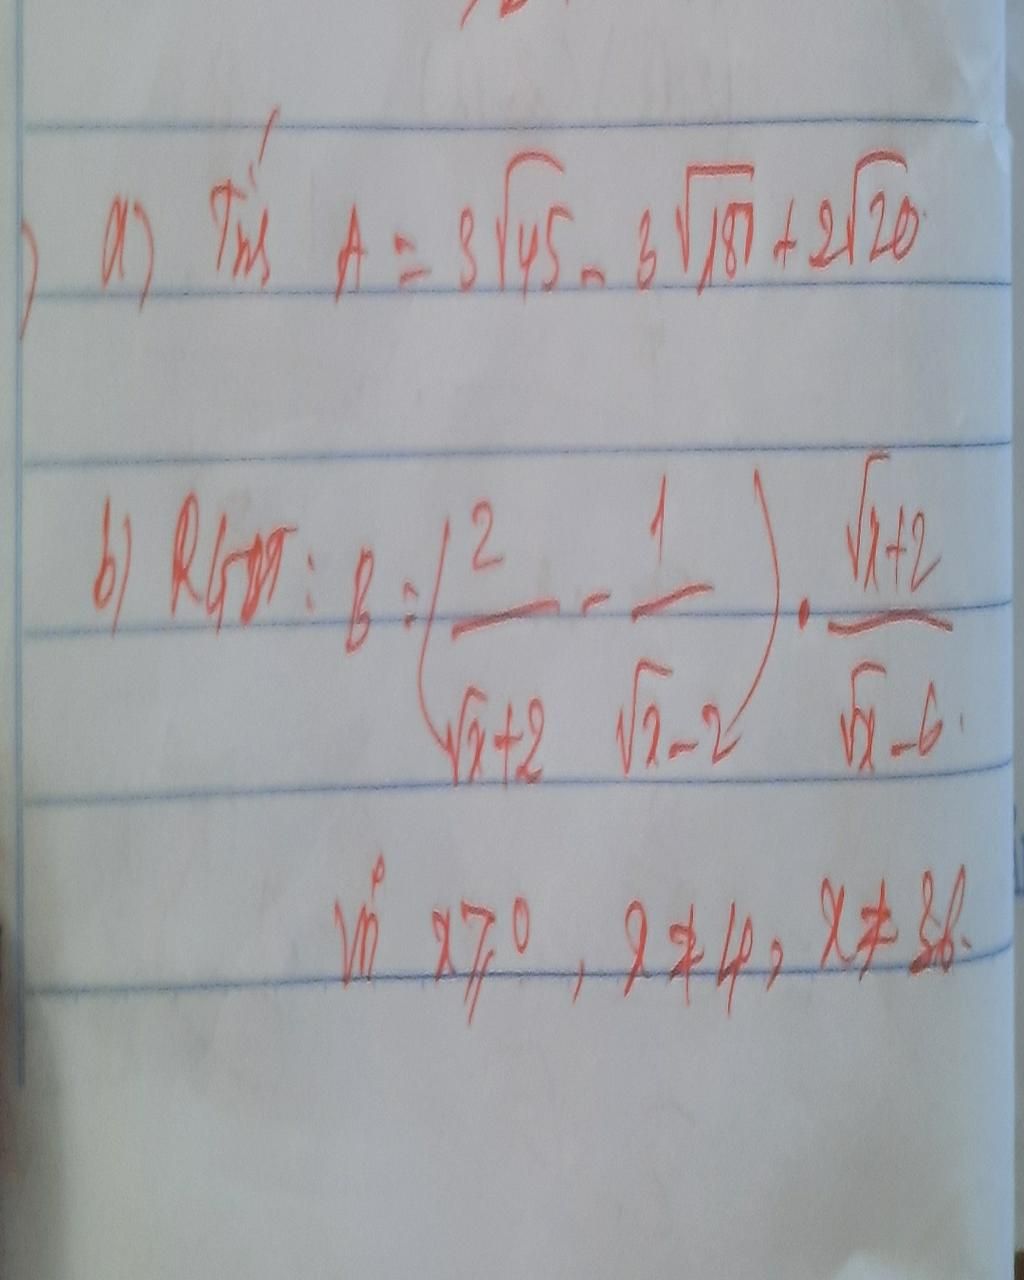 a) Tính A = 3√45 - 3√180 + 2√20
b) RGBT: B = (2/(√x+2) - 1/(√x-2)) . (√x+2)/(√x-6)
với x ≥ 0, x ≠ 4, x ≠ 36.